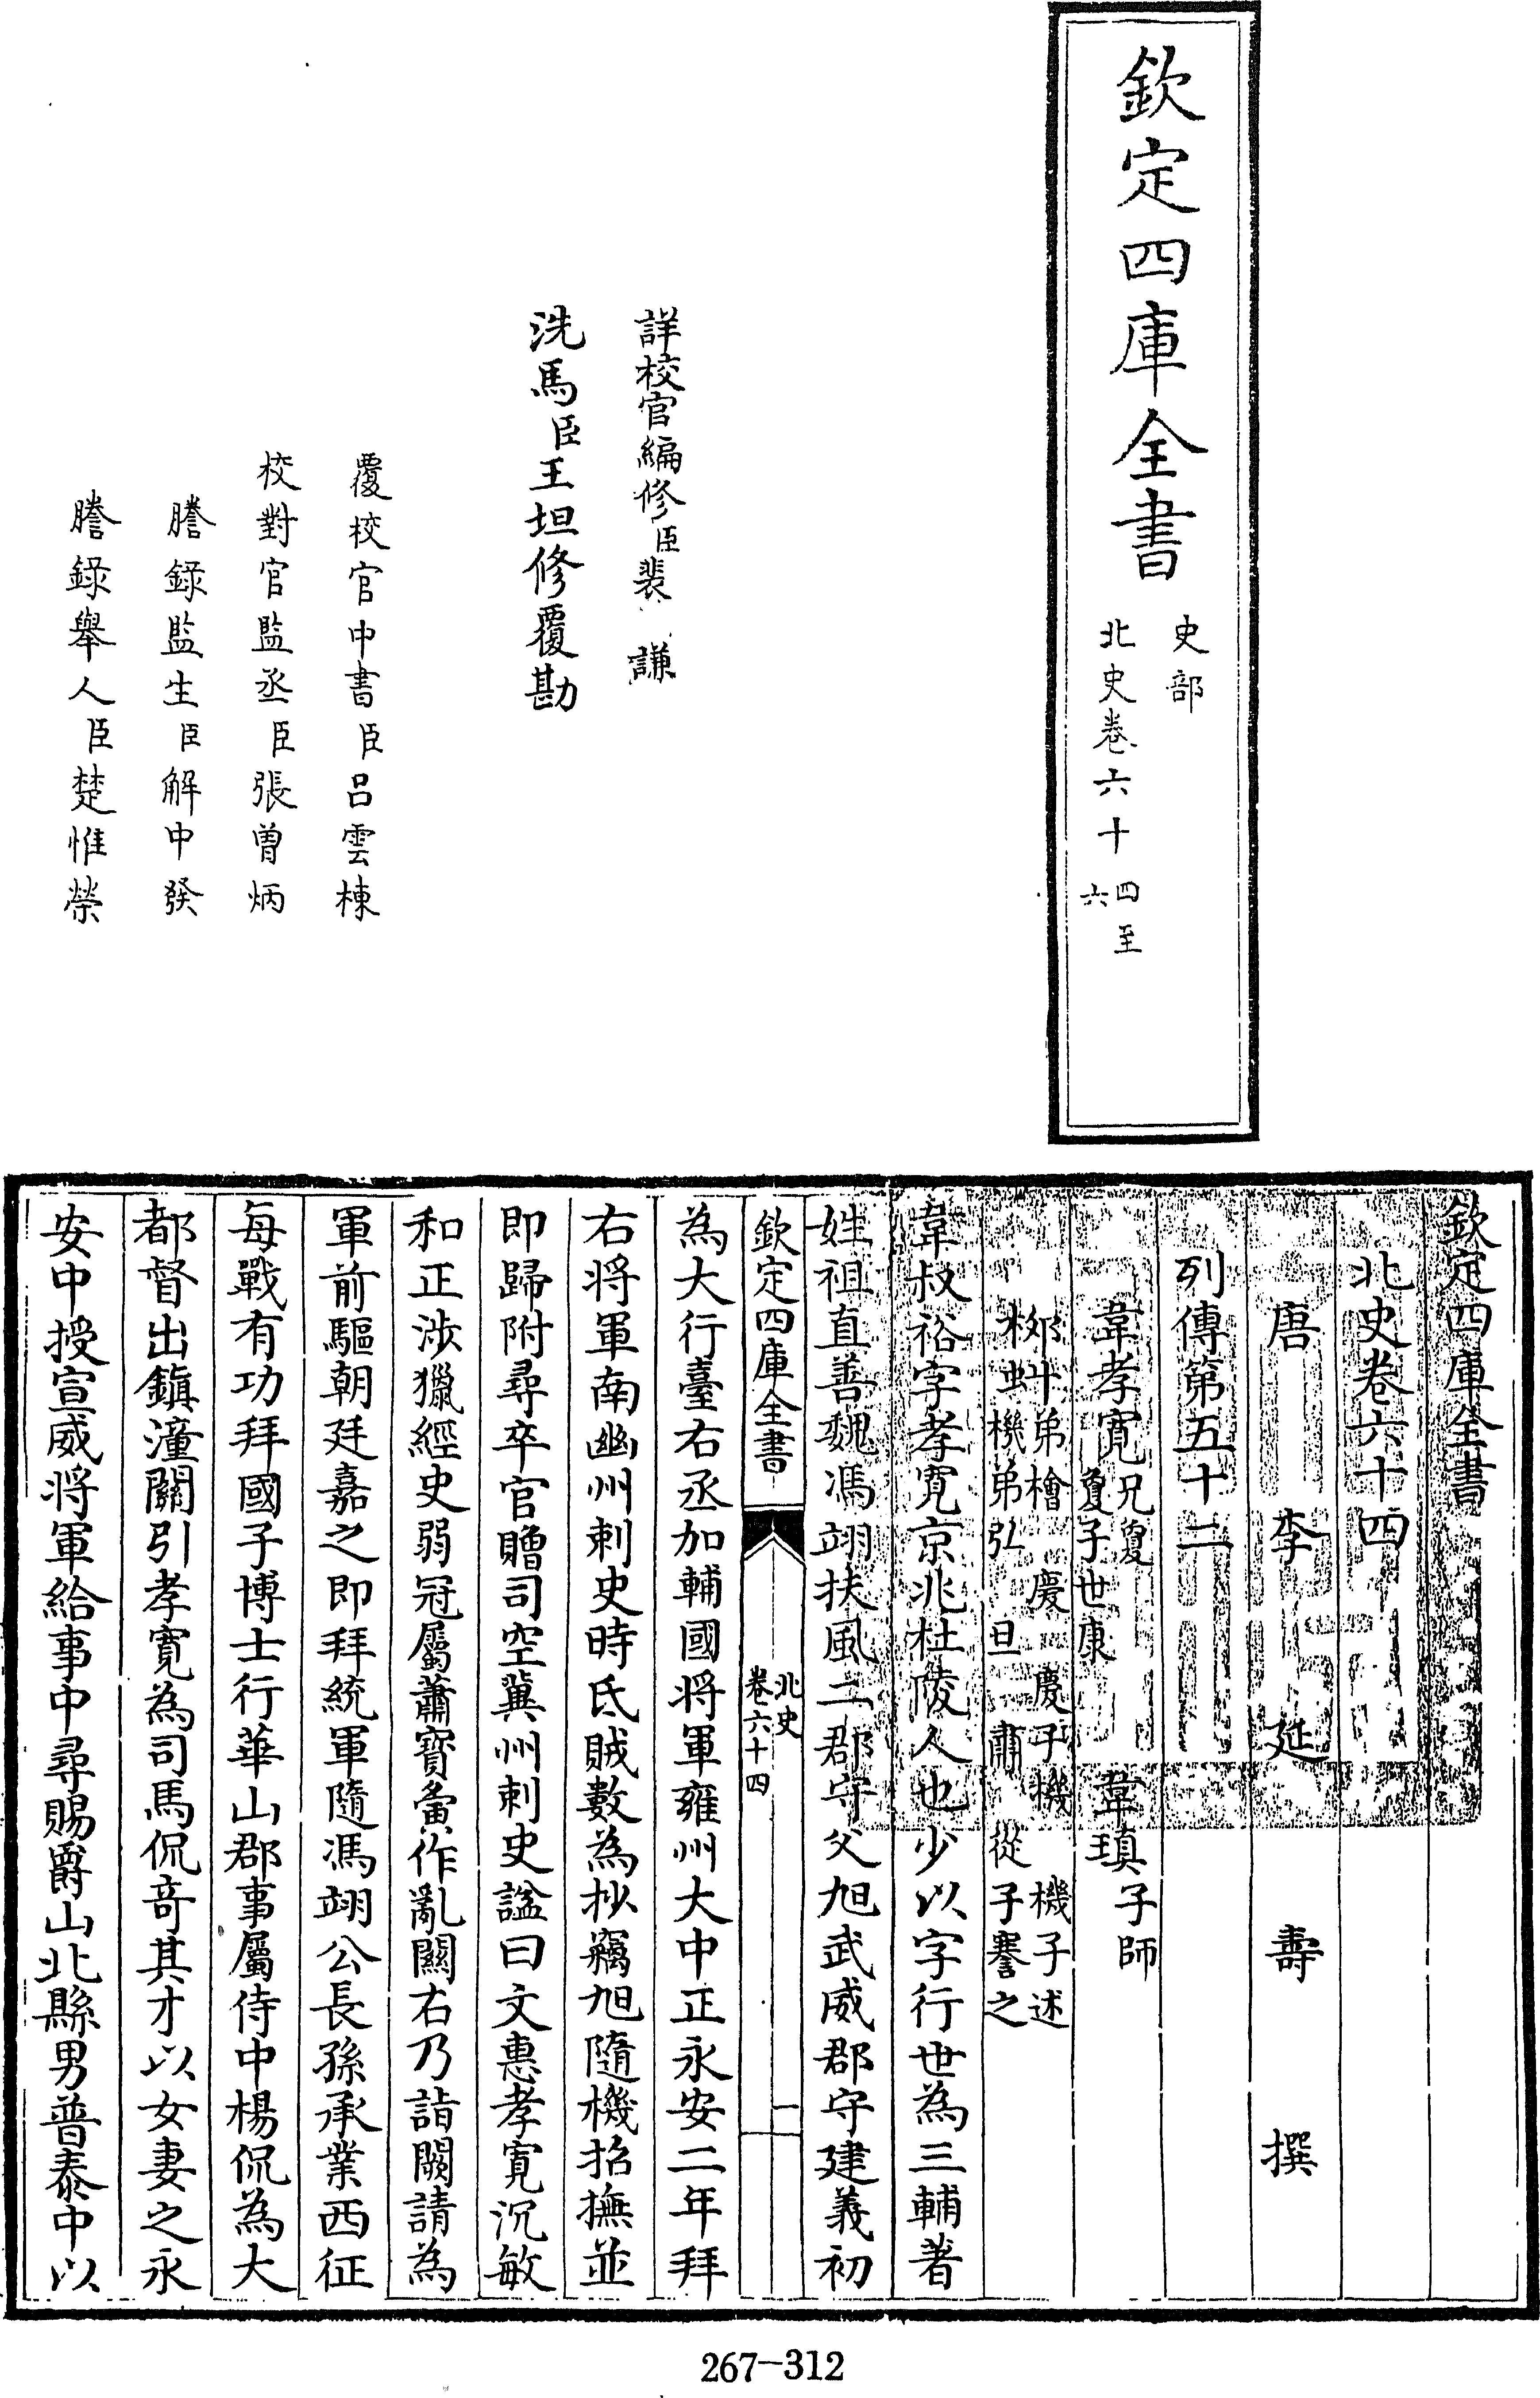 欽定四庫全書
史部
北史卷六十四至六
詳校官編修臣裴謙
洗馬臣王坦修覆勘
覆校官中書臣呂雲棟
校對官監丞臣張曾炳
謄錄監生臣解中發
謄錄舉人臣楚惟榮
欽定四庫全書
北史卷六十四
唐李延壽撰
列傳第五十二
韋孝寬兄敻敻子世康 韋瑱子師
柳虯弟檜 慶 慶子機 機子述
機弟弘 旦 肅 從子謇之
韋叔裕字孝寬京兆杜陵人也少以字行世為三輔著
姓祖直善魏馮翊扶風二郡守父旭武威郡守建義初
欽定四庫全書 北史卷六十四 一
為大行臺右丞加輔國將軍雍州大中正永安二年拜
右將軍南幽州刺史時氐賊數為抄竊旭隨機招撫並
即歸附尋卒官贈司空冀州刺史諡曰文惠孝寬沉敏
和正涉獵經史弱冠屬蕭寶夤作亂關右乃詣闕請為
軍前驅朝廷嘉之即拜統軍隨馮翊公長孫承業西征
每戰有功拜國子博士行華山郡事屬侍中楊侃為大
都督出鎮潼關引孝寬為司馬侃奇其才以女妻之永
安中授宣威將軍給事中尋賜爵山北縣男普泰中以
267-312